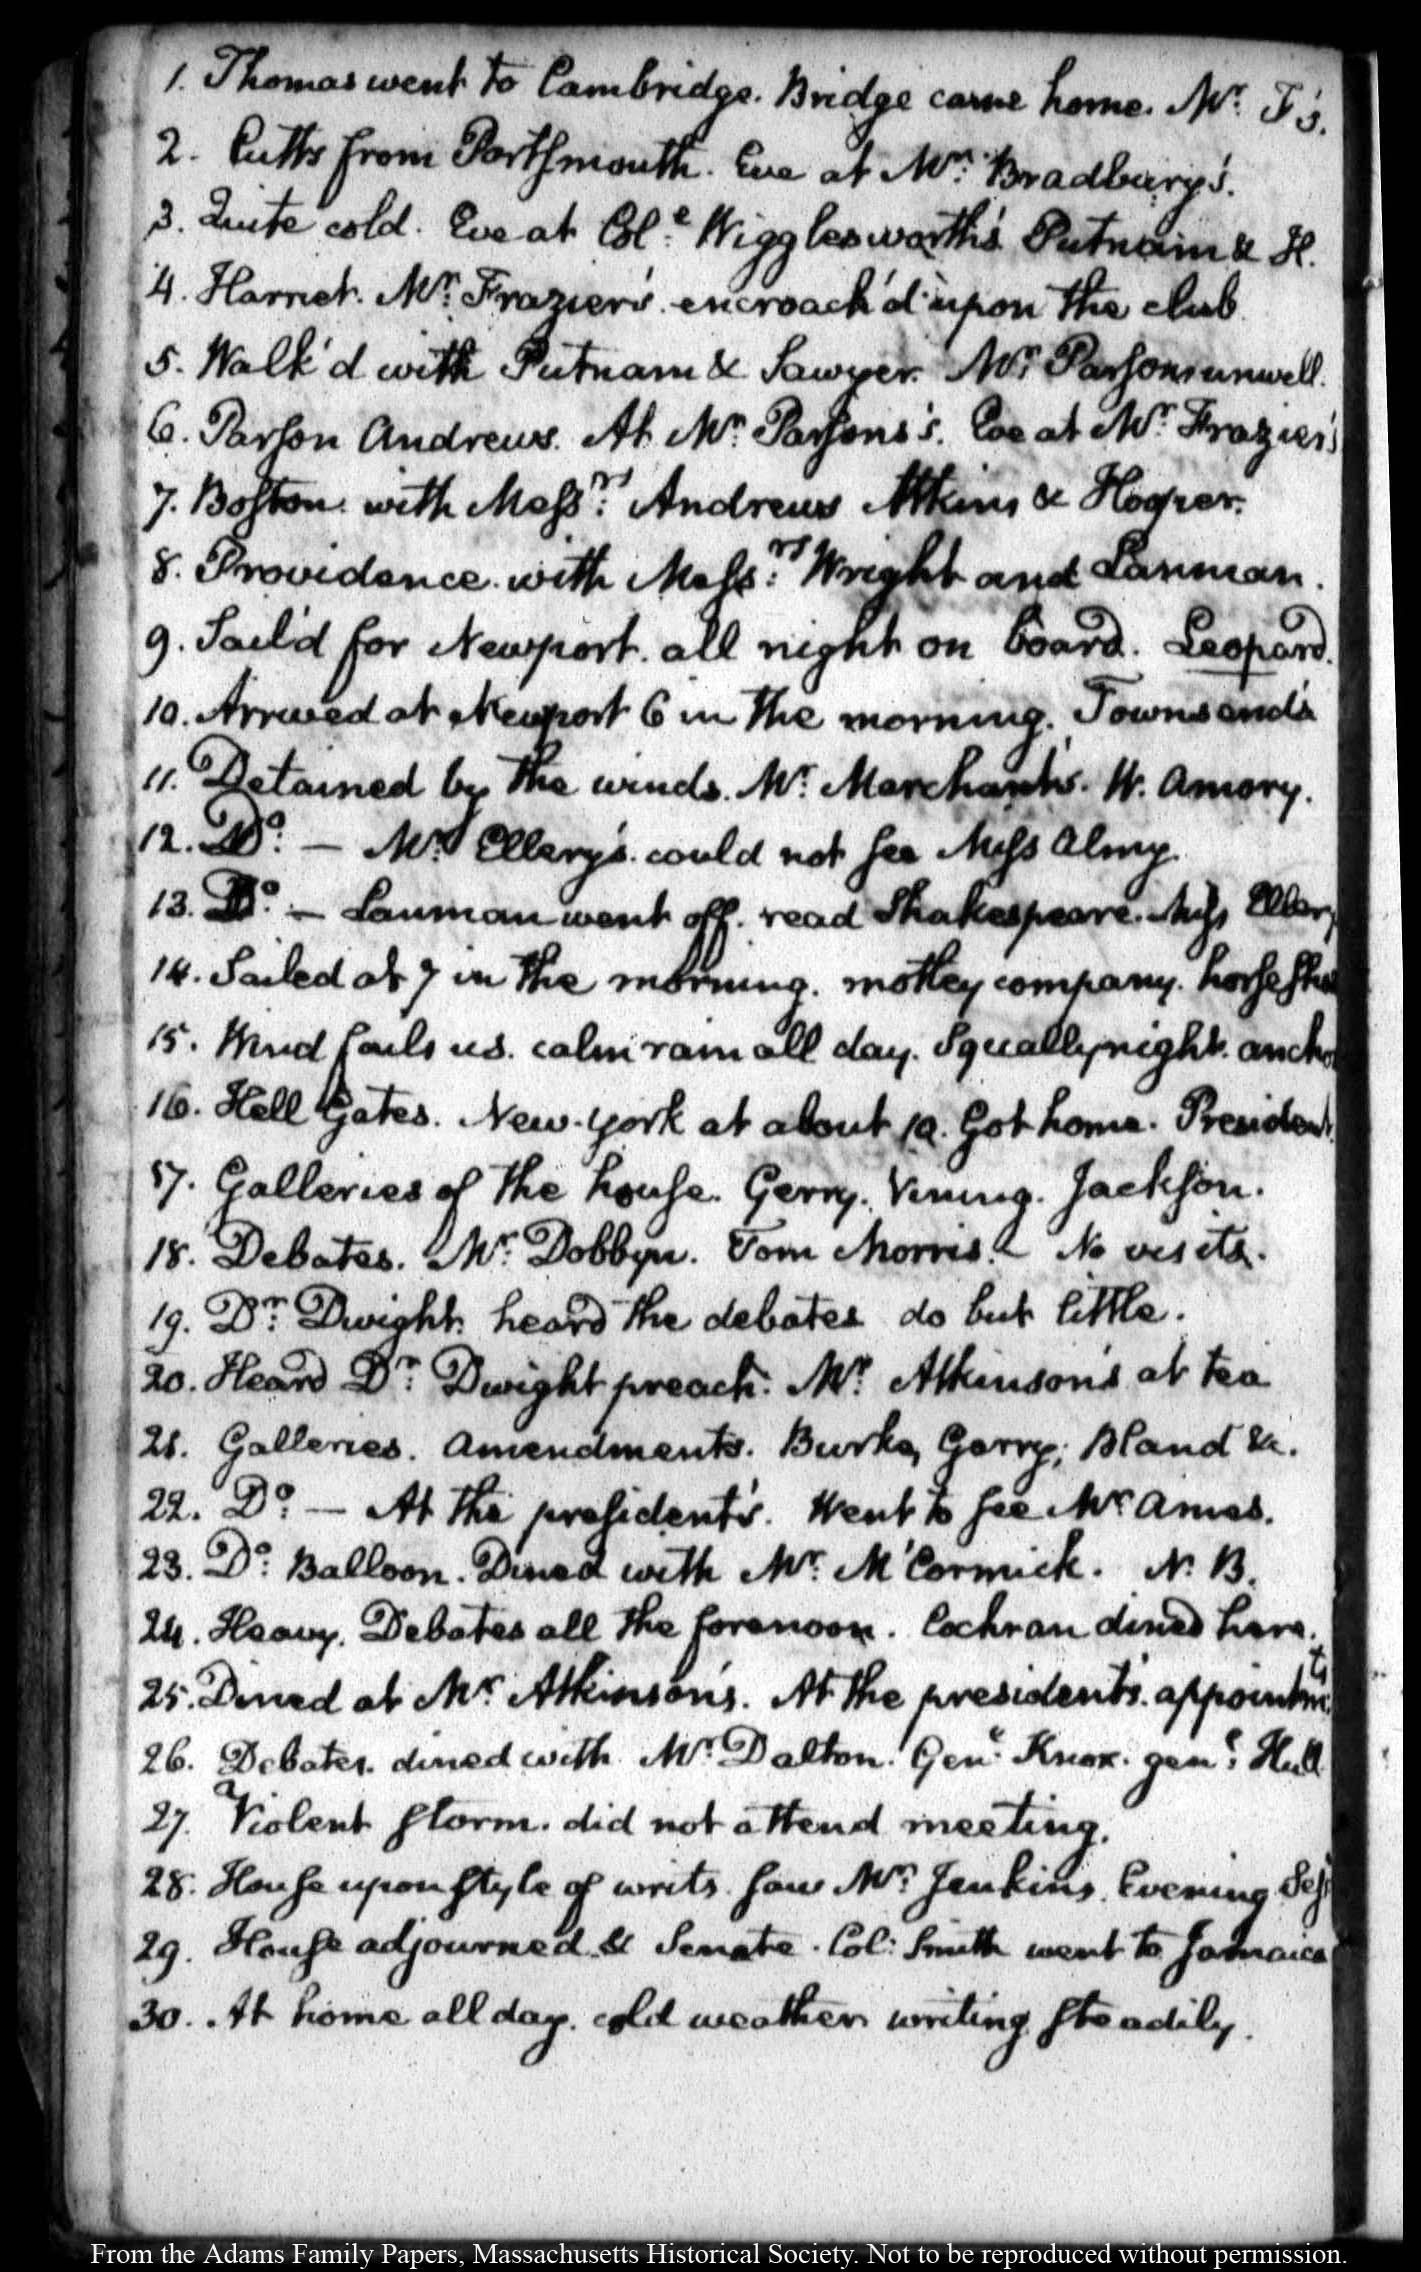 1. Thomas went to Cambridge. Bridge came home. Mr. T's.
2. Cutts from Portsmouth. Eve at Mr. Bradbury's.
3. Quite cold. Eve at Col.e Wigglesworth's Putnam & H.
4. Harriet. Mr. Frazier's. encroach'd upon the club
5. Walk'd with Putnam & Sawyer. Mr. Parsons unwell.
6. Parson Andrews. At Mr. Parsons's. Eve at Mr. Frazier's
7. Boston. with Messrs. Andrews Atkins & Hooper.
8. Providence. with Messrs. Wright and Lanman.
9. Sail'd for Newport. all night on board. Leopard.
10. Arrived at Newport 6 in the morning. Townsend's
11. Detained by the winds. Mr. Marchant's. W. Amory.
12. Do. — Mr. Ellery's. could not see Miss Almy.
13. Do. — Lanman went off. read Shakespeare. Miss Ellery
14. Sailed at 7 in the morning. motley company. horse
15. Wind fails us. calm rain all day. Squally night.
16. Hell Gates. New-york at about 10. Got home. President
17. Galleries of the house. Gerry. Vining. Jackson.
18. Debates. Mr. Dobbyn. Tom Morris. — No visits.
19. Dr. Dwight. heard the debates do but little.
20. Heard Dr. Dwight preach. Mr. Atkinson's at tea
21. Galleries. Amendments. Burke, Gerry, Bland &c.
22. Do. — At the president's. Went to see Mr. Ames.
23. Do. Balloon. Dined with Mr. McCormick. N. B.
24. Heavy. Debates all the forenoon. Cochran dined here.
25. Dined at Mr. Atkinson's. At the president's. appointmts
26. Debates. dined with Mr. Dalton. Genl. Knox. genl. Hull
27. Violent storm. did not attend meeting.
28. House upon style of writs. saw Mr. Jenkins. Evening Sess
29. House adjourned & Senate. Col: Smith went to Jamaica
30. At home all day. cold weather. writing steadily.
From the Adams Family Papers, Massachusetts Historical Society. Not to be reproduced without permission.